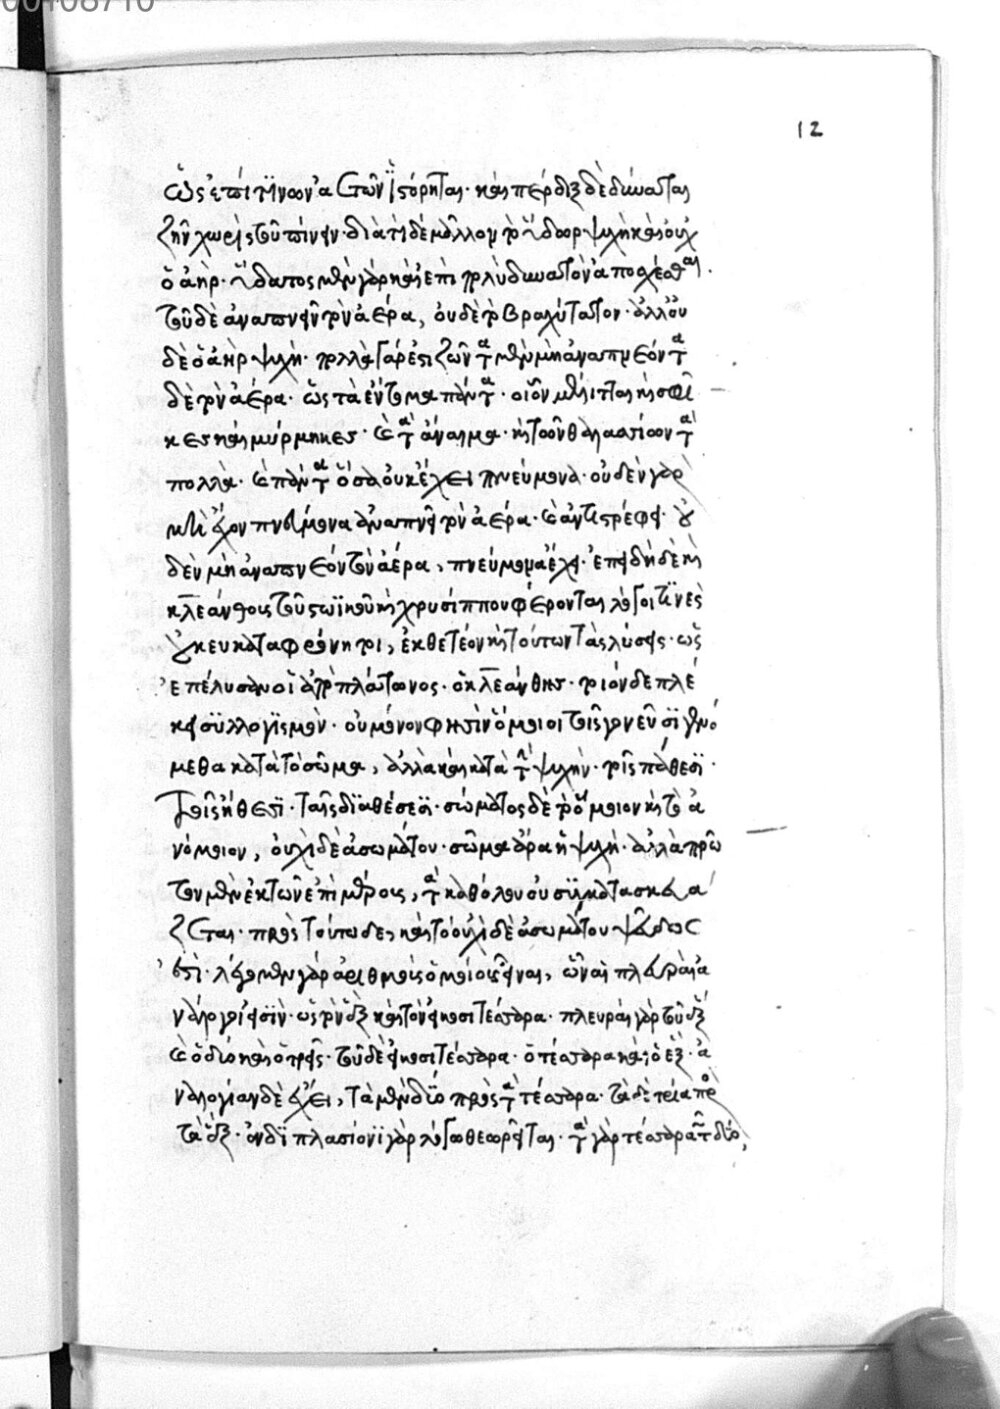 12
ὡς ἐπί τινων ἀετῶν ἱστόρηται· καὶ πέρδιξ δὲ δύναται
ζῆν χωρὶς τοῦ πίνειν· διὰ τί δὲ μᾶλλον τὸ ὕδωρ ψυχὴ καὶ οὐχ
ὁ ἀήρ· ὕδατος μὲν γὰρ καὶ ἐπὶ πολὺ δυνατὸν ἀποσχέσθαι·
τοῦ δὲ ἀναπνεῖν τὸν ἀέρα, οὐδὲ τὸ βραχύτατον· ἀλλ' οὐ
δὲ ὁ ἀὴρ ψυχή· πολλὰ γάρ ἐστι ζῶντα μὲν μὴ ἀναπνέοντα
δὲ τὸν ἀέρα· ὡς τὰ ἔντομα πάντα· οἷον μέλιτται κ σφῆ
κες καὶ μύρμηκες· κ τὰ ἄναιμα· κ τῶν θαλασσίων τὰ
πολλά· κ πάντα ὅσα οὐκ ἔχει πνεύμονα· οὐδὲν γὰρ
μὴ ἔχον πνεύμονα ἀναπνεῖ τὸν ἀέρα· κ ἀντιστρέφει· οὐ
δὲν μὴ ἀναπνέον τὸν ἀέρα, πνεύμονα ἔχει· ἐπειδὴ δὲ κ
κλεάνθους τοῦ στωϊκοῦ κ χρυσίππου φέρονται λόγοι τινὲς
οὐκ εὐκαταφρόνητοι, ἐκθετέον κ τούτων τὰς λύσεις· ὡς
ἐπέλυσαν οἱ ἀπὸ πλάτωνος· ὁ κλεάνθης· τοιόνδε πλέ
κει συλλογισμόν· οὐ μόνον φησὶν ὅμοιοι τοῖς γονεῦσι γινό
μεθα κατὰ τὸ σῶμα, ἀλλὰ καὶ κατὰ τὴν ψυχήν· τοῖς πάθεσι·
τοῖς ἤθεσι· ταῖς διαθέσεσι· σώματος δὲ τὸ ὅμοιον κ τὸ ἀ
νόμοιον, οὐχὶ δὲ ἀσωμάτου· σῶμα ἄρα ἡ ψυχή· ἀλλὰ πρῶ
τον μὲν ἐκ τῶν ἐπὶ μέρους, τὰ καθόλου οὐ συγκατασκευά
ζεται· πρὸς τούτω δε, καὶ τὸ οὐχὶ δὲ ἀσωμάτου ψεῦδος
ἐστί· λέγομεν γὰρ ἀριθμοὺς ὁμοίους εἶναι, ὧν αἱ πλευραὶ ἀ
ναλογοῦσιν· ὡς τὸν ἓξ καὶ τὸν εἰκοσιτέσσαρα· πλευραὶ γὰρ τοῦ ἓξ
κ ὁ δύο καὶ ὁ τρεῖς· τοῦ δὲ εἰκοσιτέσσαρα· ὁ τέσσαρα καὶ ὁ ἕξ· ἀ
ναλογίαν δὲ ἔχει, τὰ μὲν δύο πρὸς τὰ τέσσαρα· τὰ δὲ τρία πρὸ
τὰ ἕξ· ἐν διπλασίονι γὰρ λόγω θεωρεῖται· τὰ γὰρ τέσσαρα τῶν δύο,